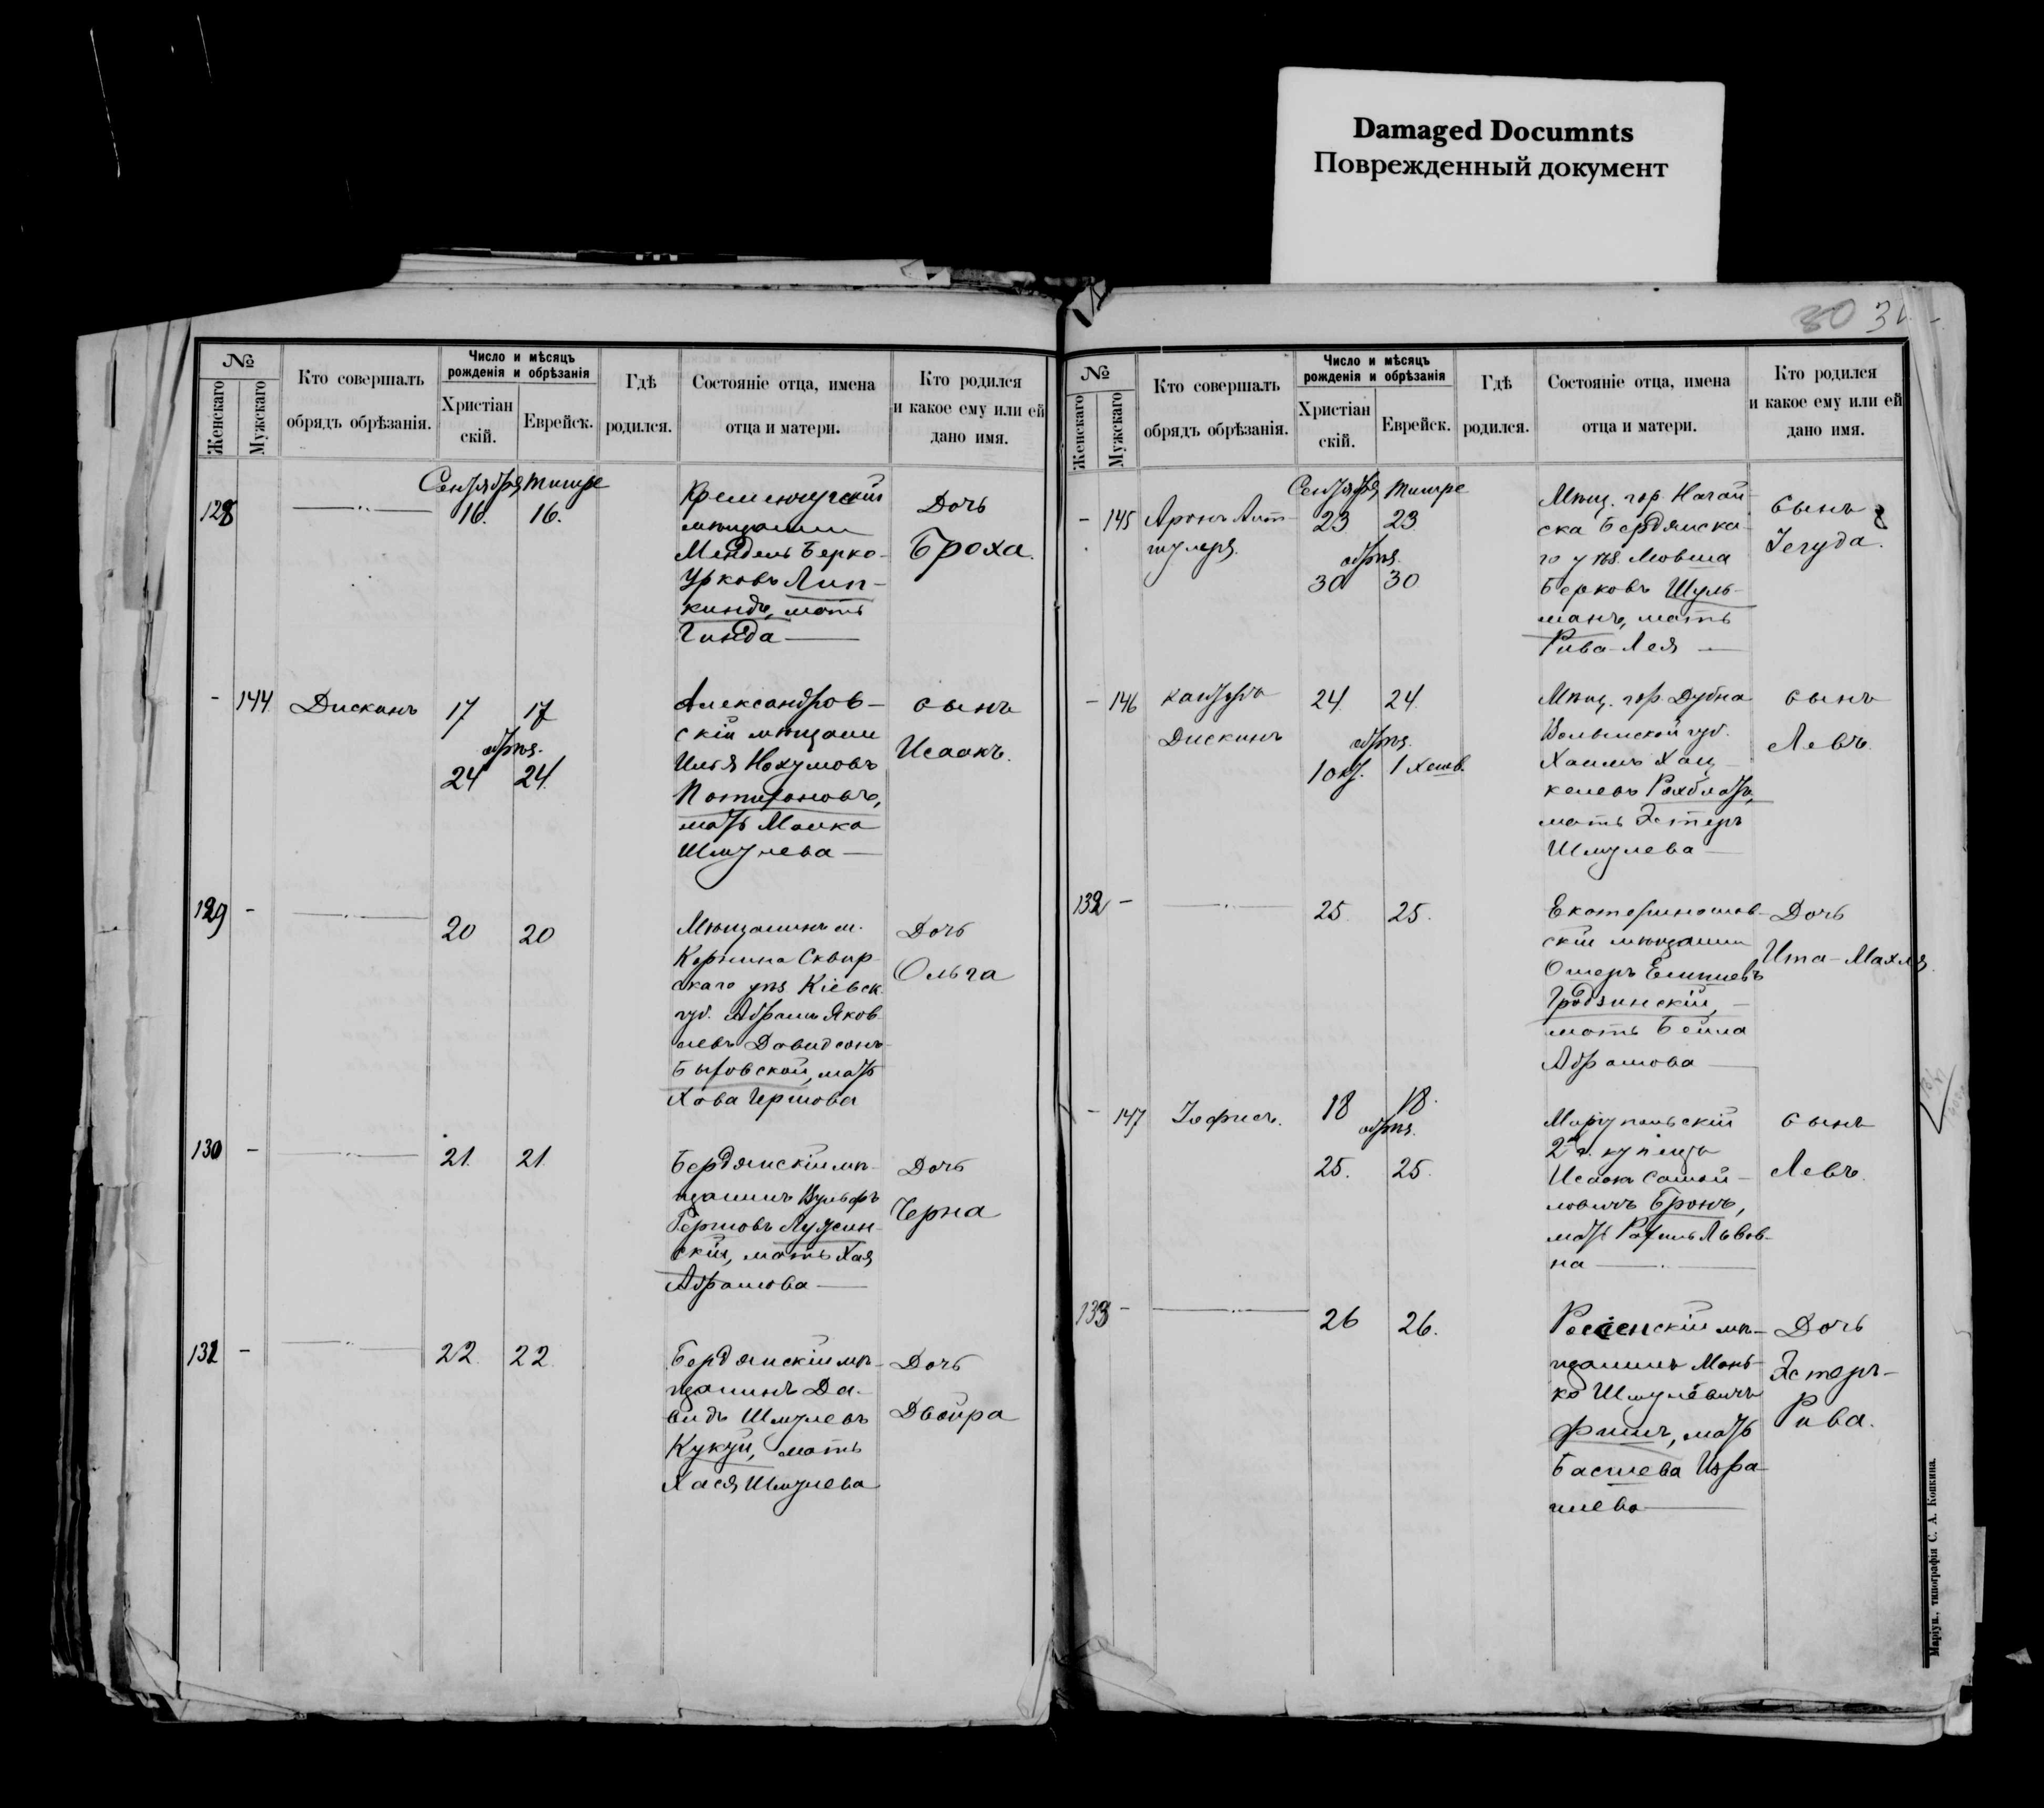 Damaged Documnts
Поврежденный документ
30 31
№
Женскаго
Мужскаго
Кто совершалъ
обрядъ обрѣзанія.
Число и мѣсяцъ
рожденія и обрѣзанія
Христіан
скій.
Еврейск.
Гдѣ
родился.
Состояніе отца, имена
отца и матери.
Кто родился
и какое ему или ей
дано имя.
Сентября Тишре
128
16. 16.
Кременчугскій
мѣщанин
Мендель Берко-
Урковъ Лип-
киндъ, мать
Гинда
Дочь
Броха.
- 144
Дискинъ
17 17
обрѣз.
24 24.
Александров-
скій мѣщани
Илья Нохумовъ
мать Малка
Шмулева
сынъ
Исаакъ.
129 -
20 20
Мѣщанинъ м.
Корнина Сквир
скаго уѣз. Кіевск.
губ. Абрамъ Яков
левъ Давидсонъ-
Быховской, мать
Хава Гершова
Дочь
Ольга
130 -
21. 21.
Бердянскій мѣ-
щанинъ Вульфъ
Гершовъ Лузин-
скій, мать Хая
Абрамова
Дочь
Черна
131 -
22. 22.
Бердянскій мѣ-
щанинъ Да-
видъ Шмулевъ
Кукуй, мать
Хася Шмулева
Дочь
Двейра
№
Женскаго
Мужскаго
Кто совершалъ
обрядъ обрѣзанія.
Число и мѣсяцъ
рожденія и обрѣзанія
Христіан
скій.
Еврейск.
Гдѣ
родился.
Состояніе отца, имена
отца и матери.
Кто родился
и какое ему или ей
дано имя.
Сентября Тишре
- 145
Аронъ Альт-
шулеръ.
23 23
обрѣз.
30 30
Мѣщ. гор. Ногай-
ска Бердянска-
го уѣз. Мовша
Берковъ Шуль-
манъ, мать
Рива-Лея
сынъ
Іегуда.
- 146
канторъ
Дискинъ
24. 24.
обрѣз.
1 окт. 1 Хешв.
Мѣщ. гор. Дубна
Волынской губ.
Хаимъ Хац
келевъ
мать Эстеръ
Шмулева
сынъ
Левъ.
132 -
25. 25.
Екатеринослав-
скій мѣщанин
Гродзинскій,
мать Бейла
Абрамова
Дочь
Ита-Махля.
- 147
Іофисъ.
18 18.
обрѣз.
25. 25.
Маріупольскій
2й г. купецъ
Исаакъ Самой-
ловичъ Бронъ,
мать Рахиль Львов-
на
сынъ
Левъ.
133 -
26 26.
Россіенскій мѣ-
щанинъ Мань-
ко Шмулевичъ
Фишъ, мать
Басшева Изра-
илева
Дочь
Эстеръ-
Рива.
Маріуп., типографія С. А. Копкина.